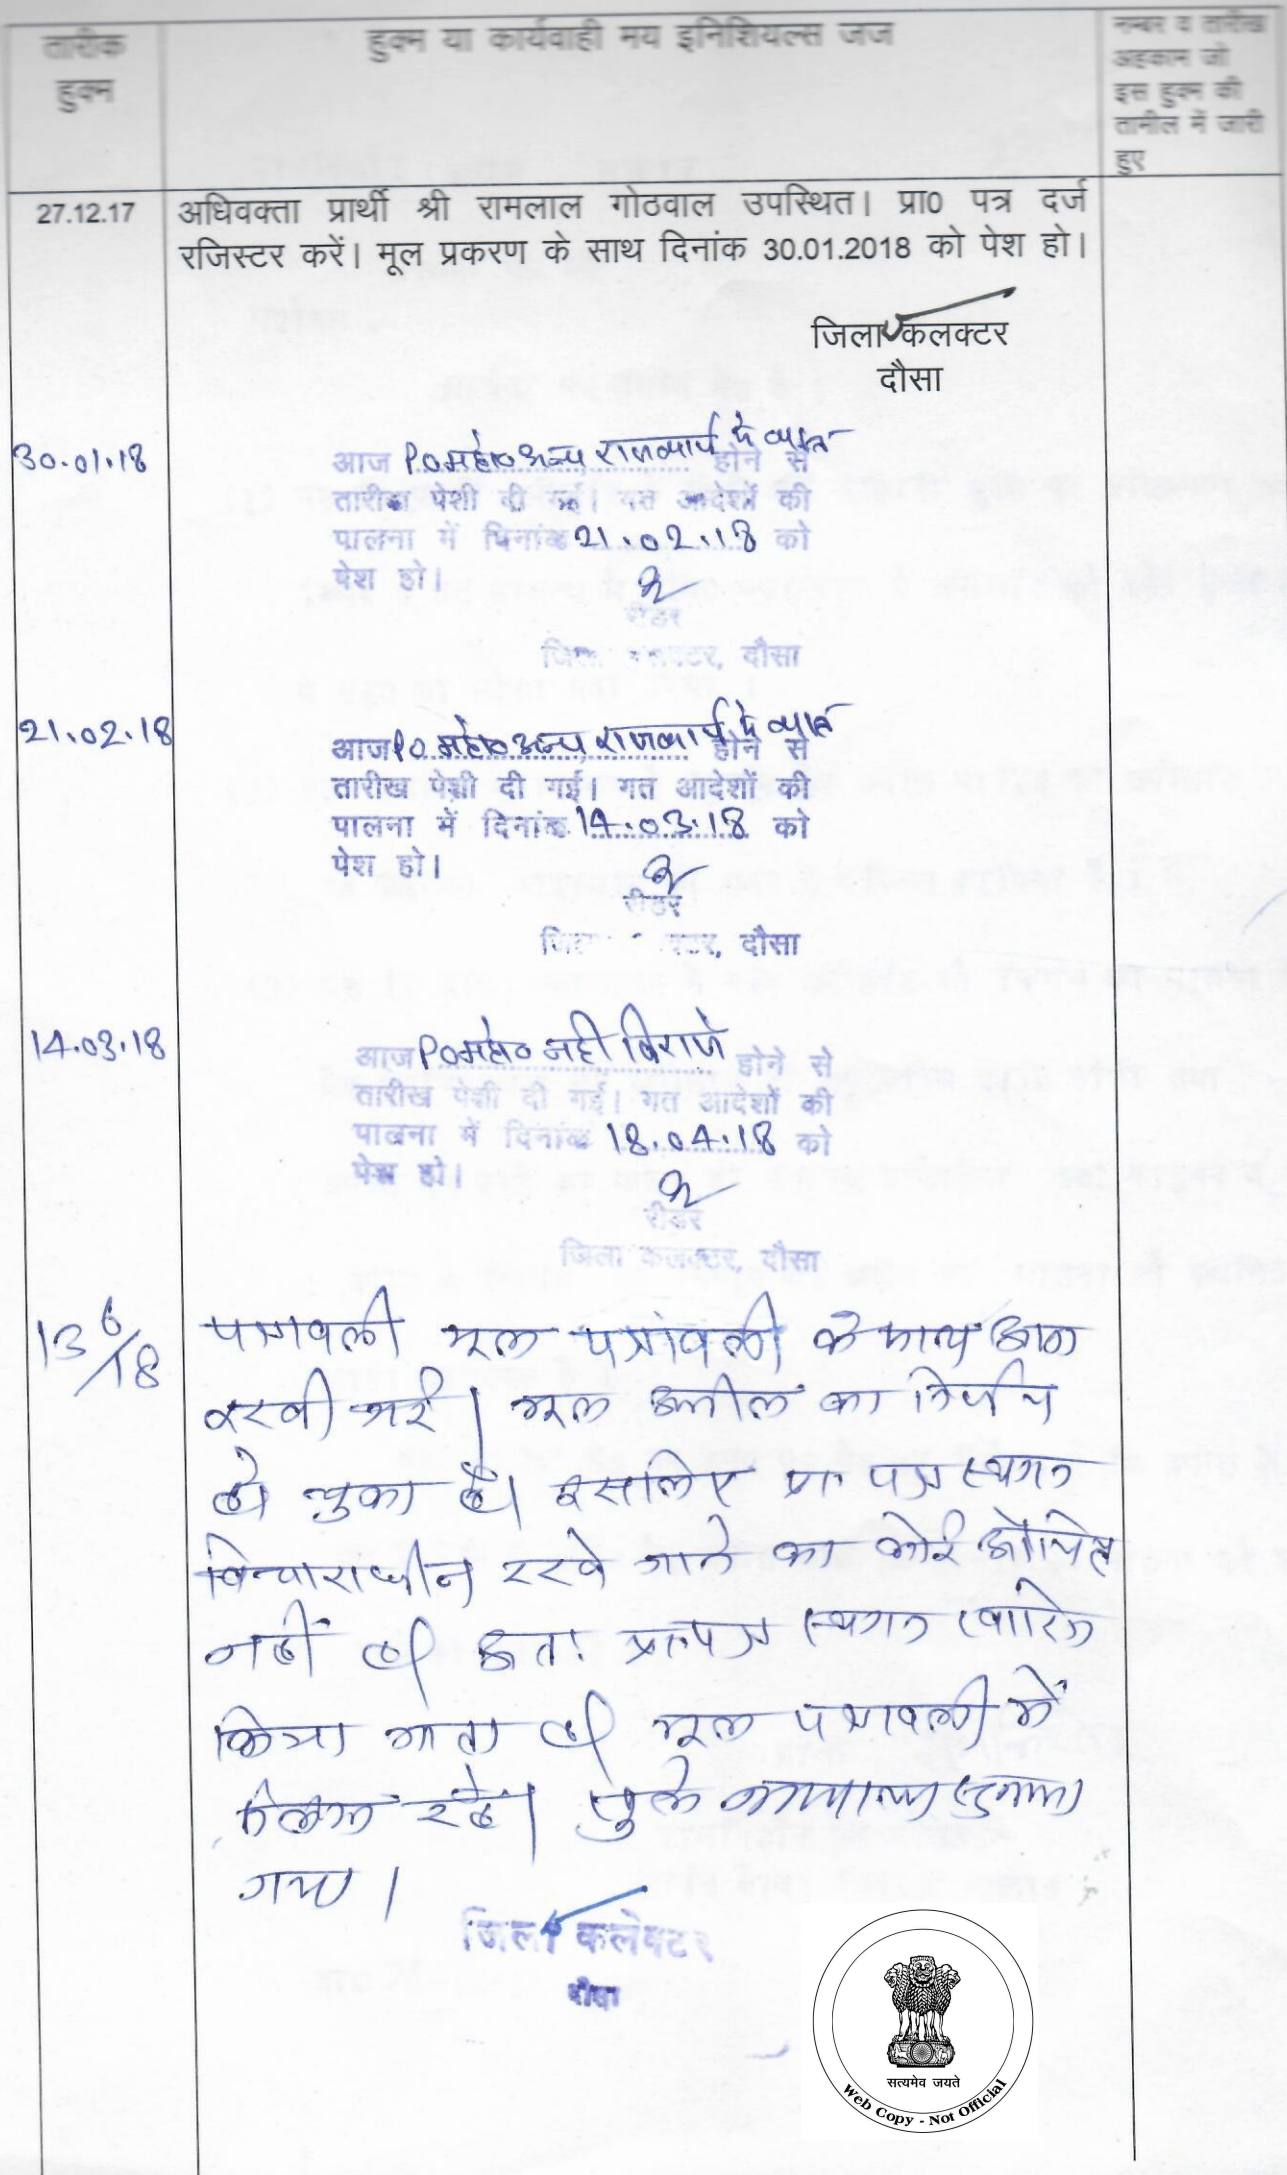 तारीक
हुक्म
हुक्म या कार्यवाही मय इनिशियल्स जज
नम्बर व तारीख
अहकाम जो
इस हुक्म की
तामील में जारी
हुए
27.12.17
अधिवक्ता प्रार्थी श्री रामलाल गोठवाल उपस्थित। प्रा0 पत्र दर्ज
रजिस्टर करें। मूल प्रकरण के साथ दिनांक 30.01.2018 को पेश हो।
जिला कलक्टर
दौसा
30.01.18
आज P.O महो० अन्य राजकार्य में व्यस्त होने से
तारीख पेशी दी गई। गत आदेशों की
पालना में दिनांक 21.02.18 को
पेश हो।
रीडर
जिला कलक्टर, दौसा
21.02.18
आज P.O महो० अन्य राजकार्य में व्यस्त होने से
तारीख पेशी दी गई। गत आदेशों की
पालना में दिनांक 14.03.18 को
पेश हो।
रीडर
जिला कलक्टर, दौसा
14.03.18
आज P.O महो० नही विराजे होने से
तारीख पेशी दी गई। गत आदेशों की
पालना में दिनांक 18.04.18 को
पेश हो।
रीडर
जिला कलक्टर, दौसा
13/6/18
पत्रावली मूल पत्रावली के साथ आज
रखी गई। मूल अपील का निर्णय
हो चुका है। इसलिए प्रा. पत्र स्थगन
विचाराधीन रखे जाने का कोई औचित्य
नहीं है। अतः प्रा. पत्र स्थगन खारिज
किया जाता है। मूल पत्रावली में
संलग्न रहे। खुले न्यायालय सुनाया
गया।
जिला कलेक्टर
दौसा
सत्यमेव जयते
Web Copy - Not Official